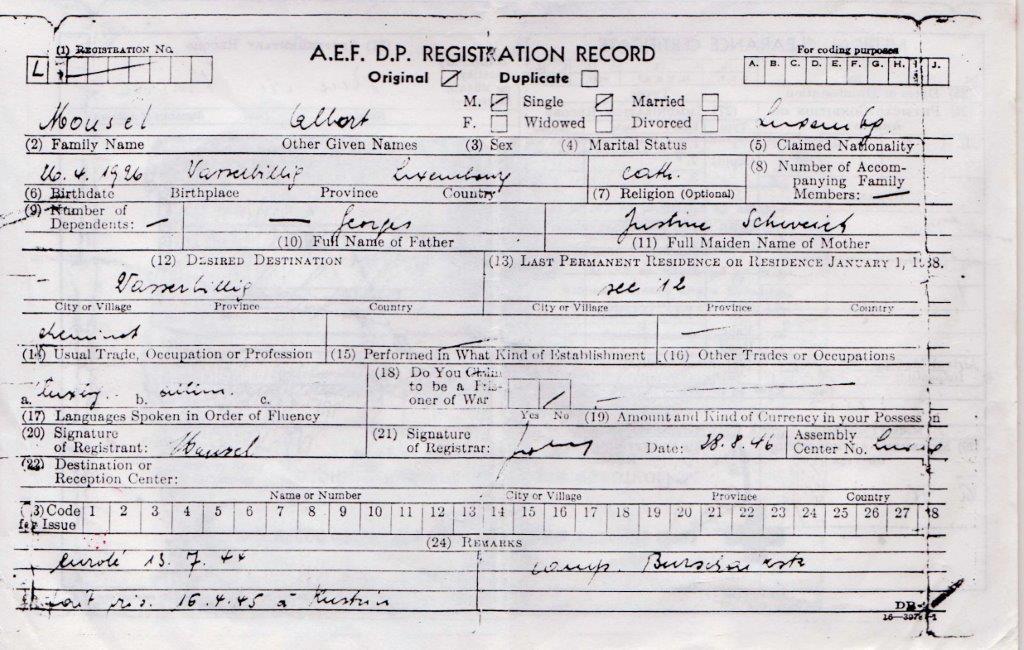 (1) REGISTRATION NO.
A.E.F. D.P. REGISTRATION RECORD
For coding purposes
L
Original Duplicate
A. B. C. D. E. F. G. H. I. J.
M. Single Married
Mousel Albert Luxembg.
F. Widowed Divorced
(2) Family Name Other Given Names (3) Sex (4) Marital Status (5) Claimed Nationality
26.4.1926 Wasserbillig Luxembourg cath.
(8) Number of Accom-
panying Family
Members: —
(6) Birthdate Birthplace Province Country (7) Religion (Optional)
(9) Number of
Dependents: — — Georges Justine Schweich
(10) Full Name of Father (11) Full Maiden Name of Mother
(12) DESIRED DESTINATION (13) LAST PERMANENT RESIDENCE OR RESIDENCE JANUARY 1, 1938.
- Wasserbillig - see 12
City or Village Province Country City or Village Province Country
cheminot — —
(14) Usual Trade, Occupation or Profession (15) Performed in What Kind of Establishment (16) Other Trades or Occupations
(18) Do You Claim
to be a Pris-
oner of War
a. luxbg. b. allem. c.
Yes No
(17) Languages Spoken in Order of Fluency (19) Amount and Kind of Currency in your Possession
(20) Signature
of Registrant: Mousel
(21) Signature
of Registrar: Date: 28.8.46
Assembly
Center No.
(22) Destination or
Reception Center:
Name or Number City or Village Province Country
(23) Code
for Issue 1 2 3 4 5 6 7 8 9 10 11 12 13 14 15 16 17 18 19 20 21 22 23 24 25 26 27 28
(24) REMARKS
enrolé 13.7.44 camp.
fait pris. 16.4.45 à Kustrin
DP-2
16—39781-1